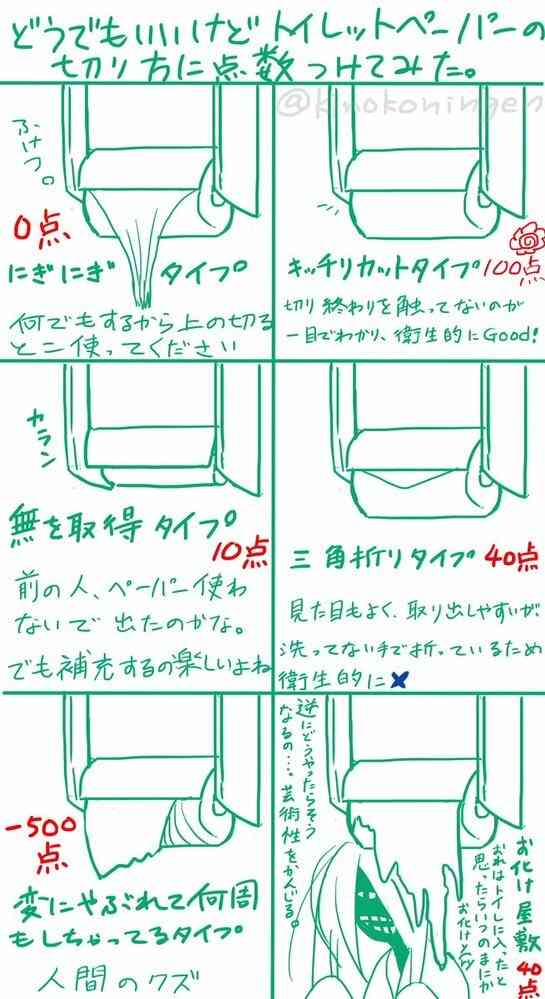 どうでもいいけどトイレットペーパーの
切り方に点数つけてみた。
@kinokoningen
ふけつ。
0点
にぎにぎ タイプ。
何でもするから上の切る
とこ使ってください
キッチリカットタイプ 100点
切り終わりを触ってないのが
一目でわかり、衛生的にGood!
カラン
無を取得タイプ。
10点
前の人、ペーパー使わ
ないで出たのかな。
でも補充するの楽しいよね
三角折りタイプ 40点
見た目もよく、取り出しやすいが、
洗ってない手で折っているため
衛生的に✖
-500
点
変にやぶれて何周
もしちゃってるタイプ。
人間のクズ
お化け屋敷
40点
おれはトイレに入ったと
思ったらいつのまにか
お化け
逆にどうやったらそう
なるの…。芸術性をかんじる。